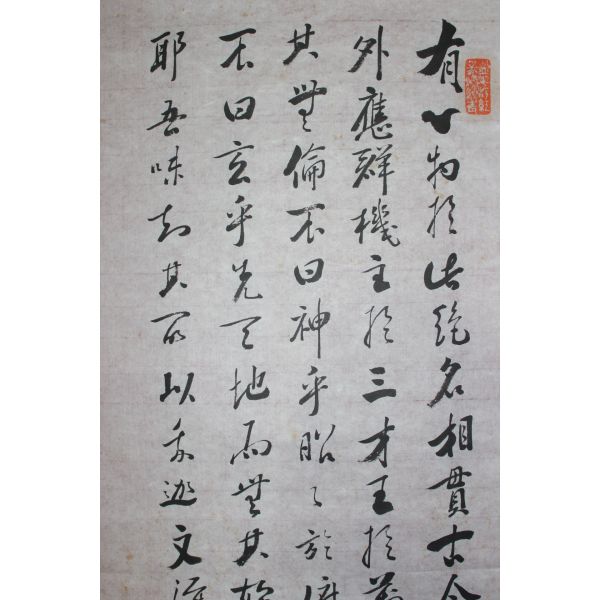 有一物於此絶名相貫古今
外應群機主於三才王於萬
其無倫不曰神乎昭〻於俯
不曰玄乎先天地而無其始
耶吾味知其所以我迦文